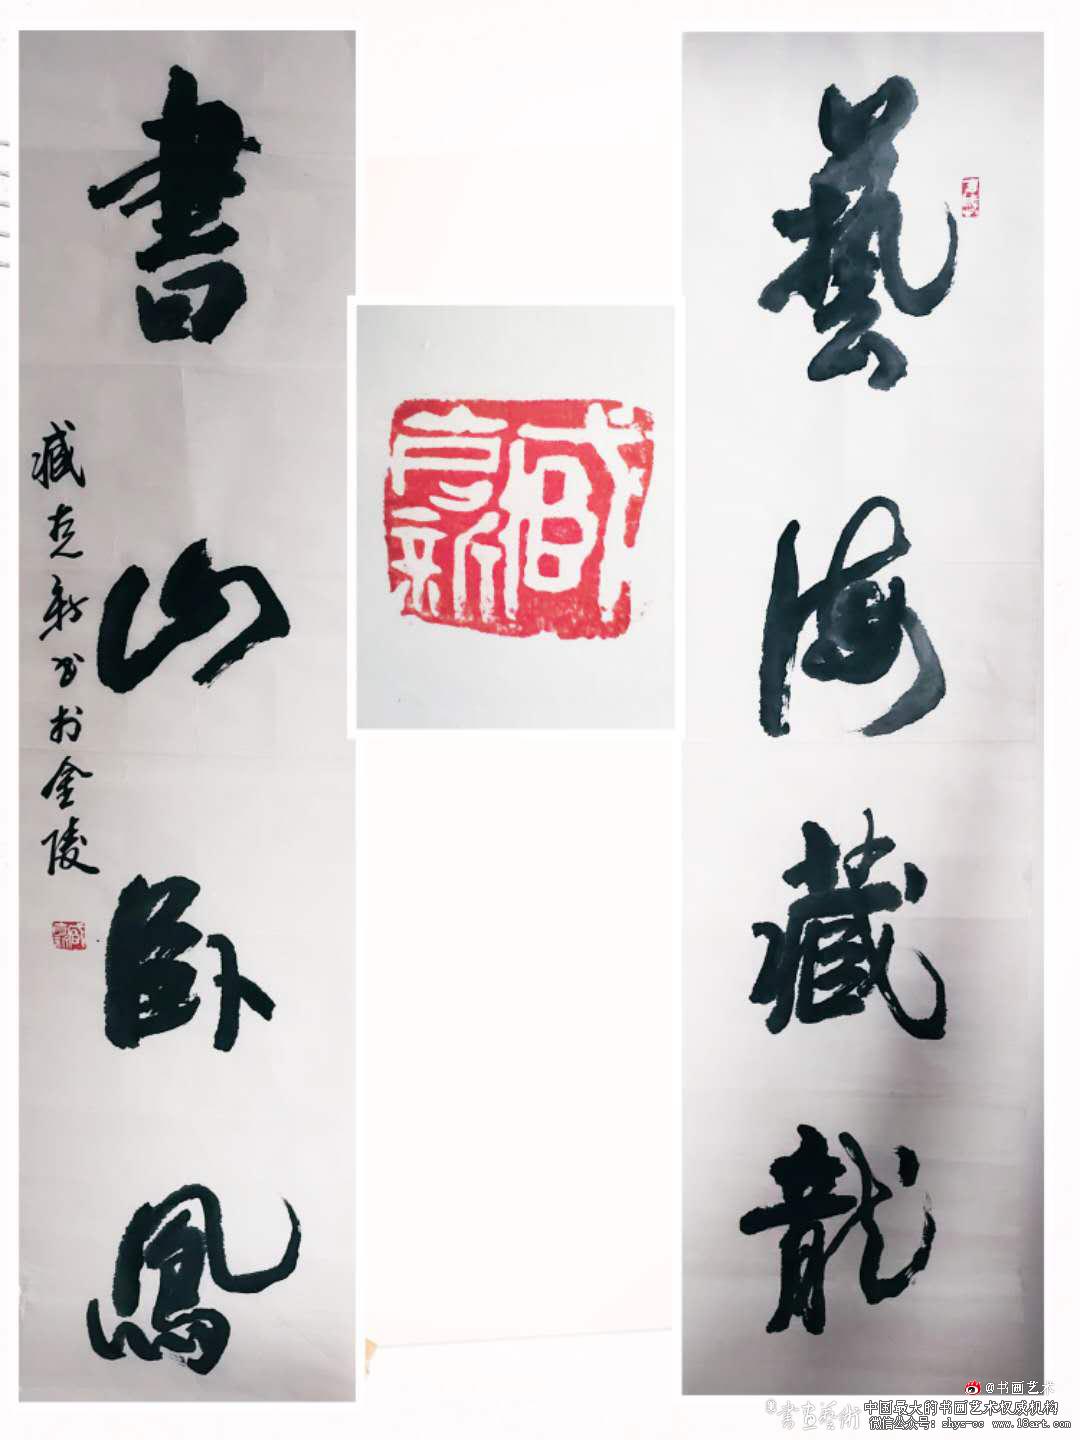 藝海藏龍
書山卧鳳
臧克新书於金陵
臧克新
臧克新
@书画艺术
©書画藝術
中国最大的书画艺术权威机构
微信公众号：shys-cc www.18art.com